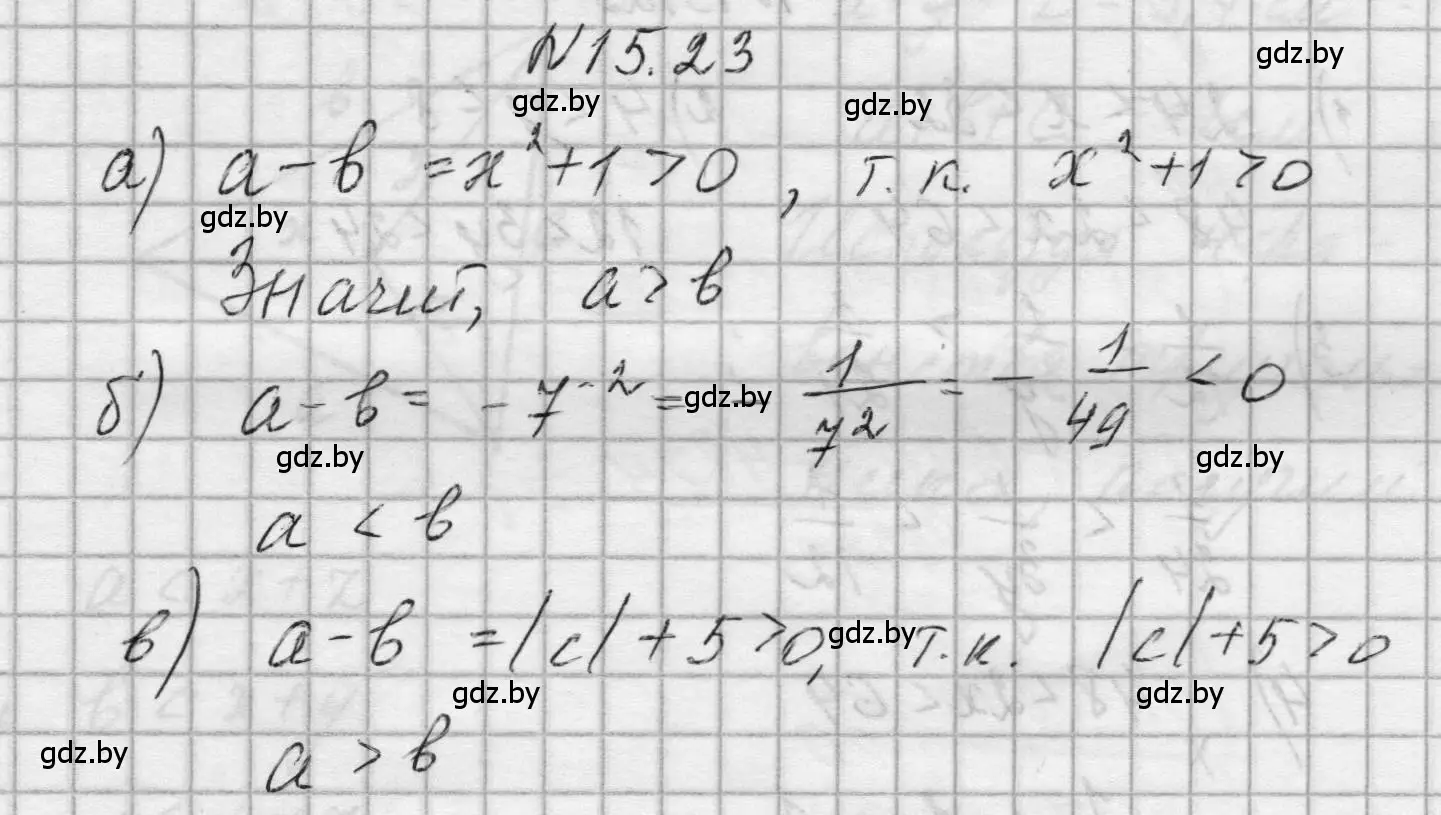 N 15.23
gdz.by
gdz.by gdz.by
а) a - b = x² + 1 > 0, т.к. x² + 1 > 0
gdz.by
Значит, a > b
б) a - b = - 7⁻² = - 1/7² = - 1/49 < 0
gdz.by
gdz.by gdz.by
a < b
в) a - b = |c| + 5 > 0, т.к. |c| + 5 > 0
gdz.by
gdz.by gdz.by
gdz.by
a > b